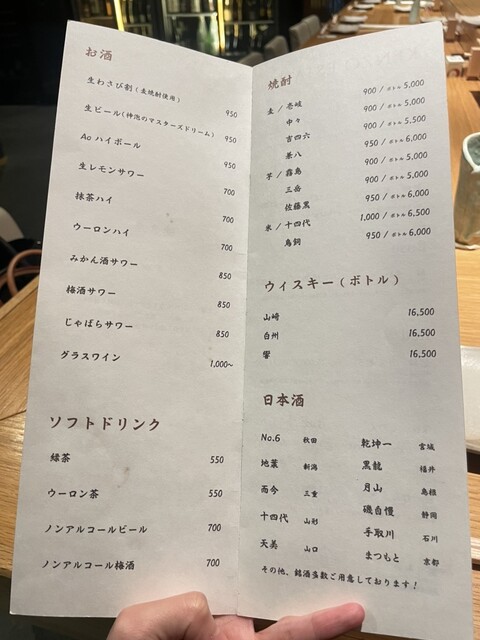 お酒
生わさび割(麦焼酎使用) 950
生ビール(神泡のマスターズドリーム) 950
Ao ハイボール 950
生レモンサワー 700
抹茶ハイ 700
ウーロンハイ 700
みかん酒サワー 850
梅酒サワー 850
じゃばらサワー 850
グラスワイン 1,000~
ソフトドリンク
緑茶 550
ウーロン茶 550
ノンアルコールビール 700
ノンアルコール梅酒 700
焼酎
麦 / 壱岐 900 / ボトル 5,000
中々 900 / ボトル 5,000
吉四六 900 / ボトル 5,500
兼八 950 / ボトル 6,000
芋 / 霧島 900 / ボトル 5,000
三岳 900 / ボトル 5,000
佐藤黒 950 / ボトル 6,000
米 / 十四代 1,000 / ボトル 6,500
鳥飼 950 / ボトル 6,000
ウィスキー(ボトル)
山崎 16,500
白州 16,500
響 16,500
日本酒
No.6 秋田 乾坤一 宮城
地葉 新潟 黒龍 福井
而今 三重 月山 島根
十四代 山形 磯自慢 静岡
天美 山口 手取川 石川
まつもと 京都
その他、銘酒多数ご用意しております!